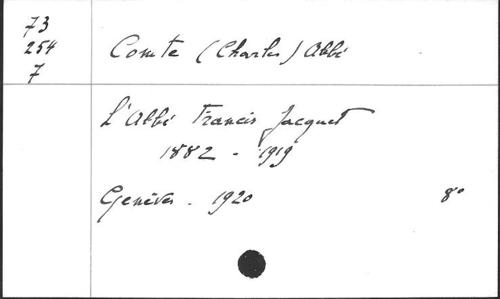 73
254
7
Comte (Charles) Abbé
L'Abbé Francis Jacquet
1882 - 1919
Genève - 1920 8°